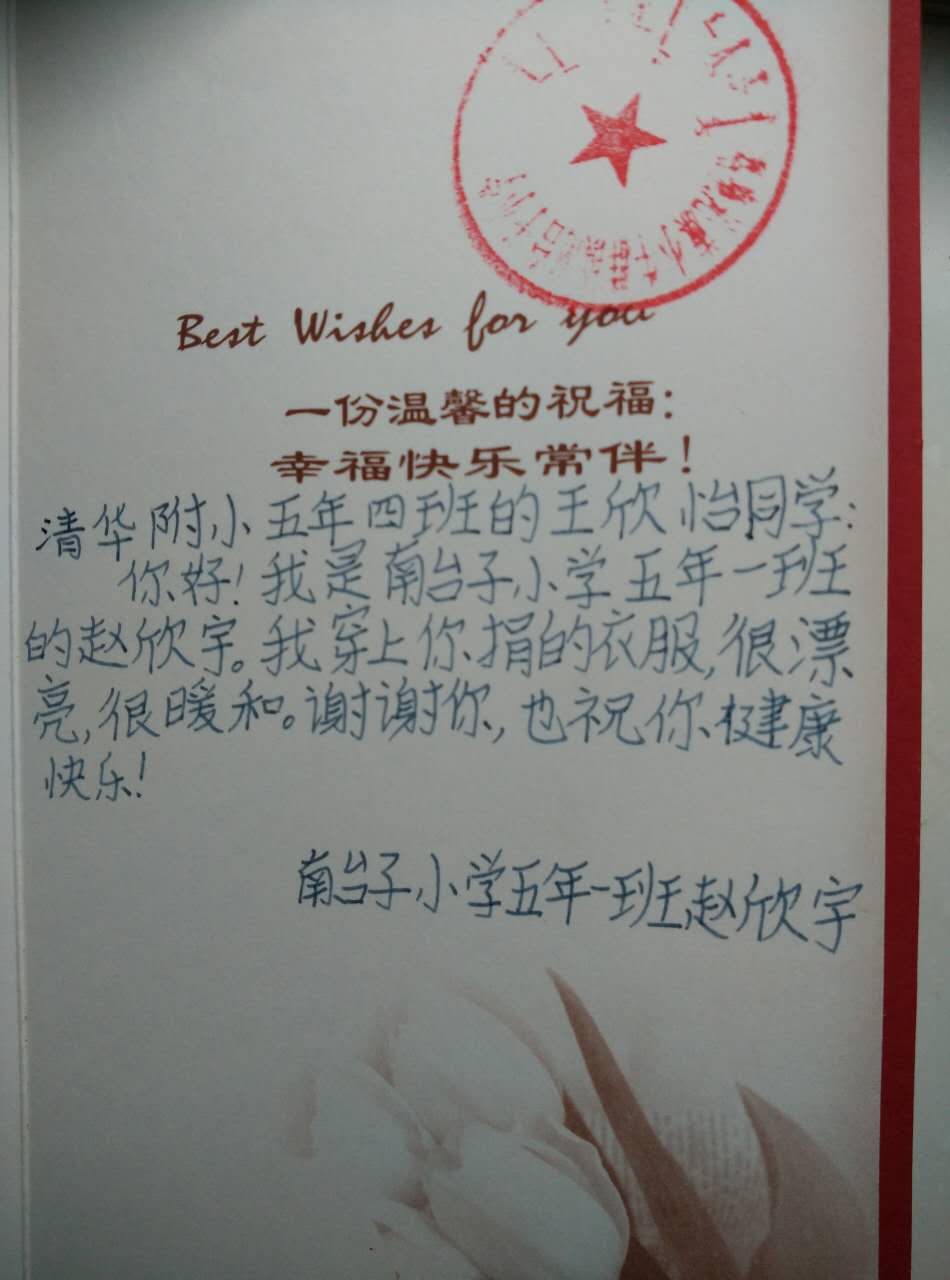 Best Wishes for you
一份温馨的祝福：
幸福快乐常伴！
清华附小五年四班的王欣怡同学：
你好！我是南台子小学五年一班
的赵欣宇。我穿上你捐的衣服，很漂
亮，很暖和。谢谢你，也祝你健康
快乐！
南台子小学五年一班赵欣宇